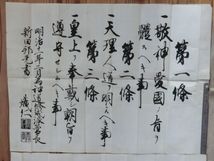 第一條
一敬神愛國ノ旨ヲ
體スヘキ事
第二條
一天理人道ヲ明ニスヘキ事
第三條
一皇上ヲ奉戴シ朝旨ヲ
遵守セシムヘキ事
明治